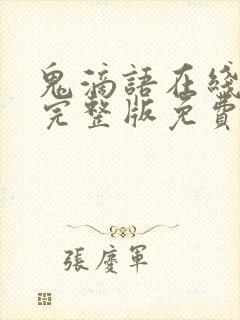 鬼滴語在綫
完整版免費
張慶軍